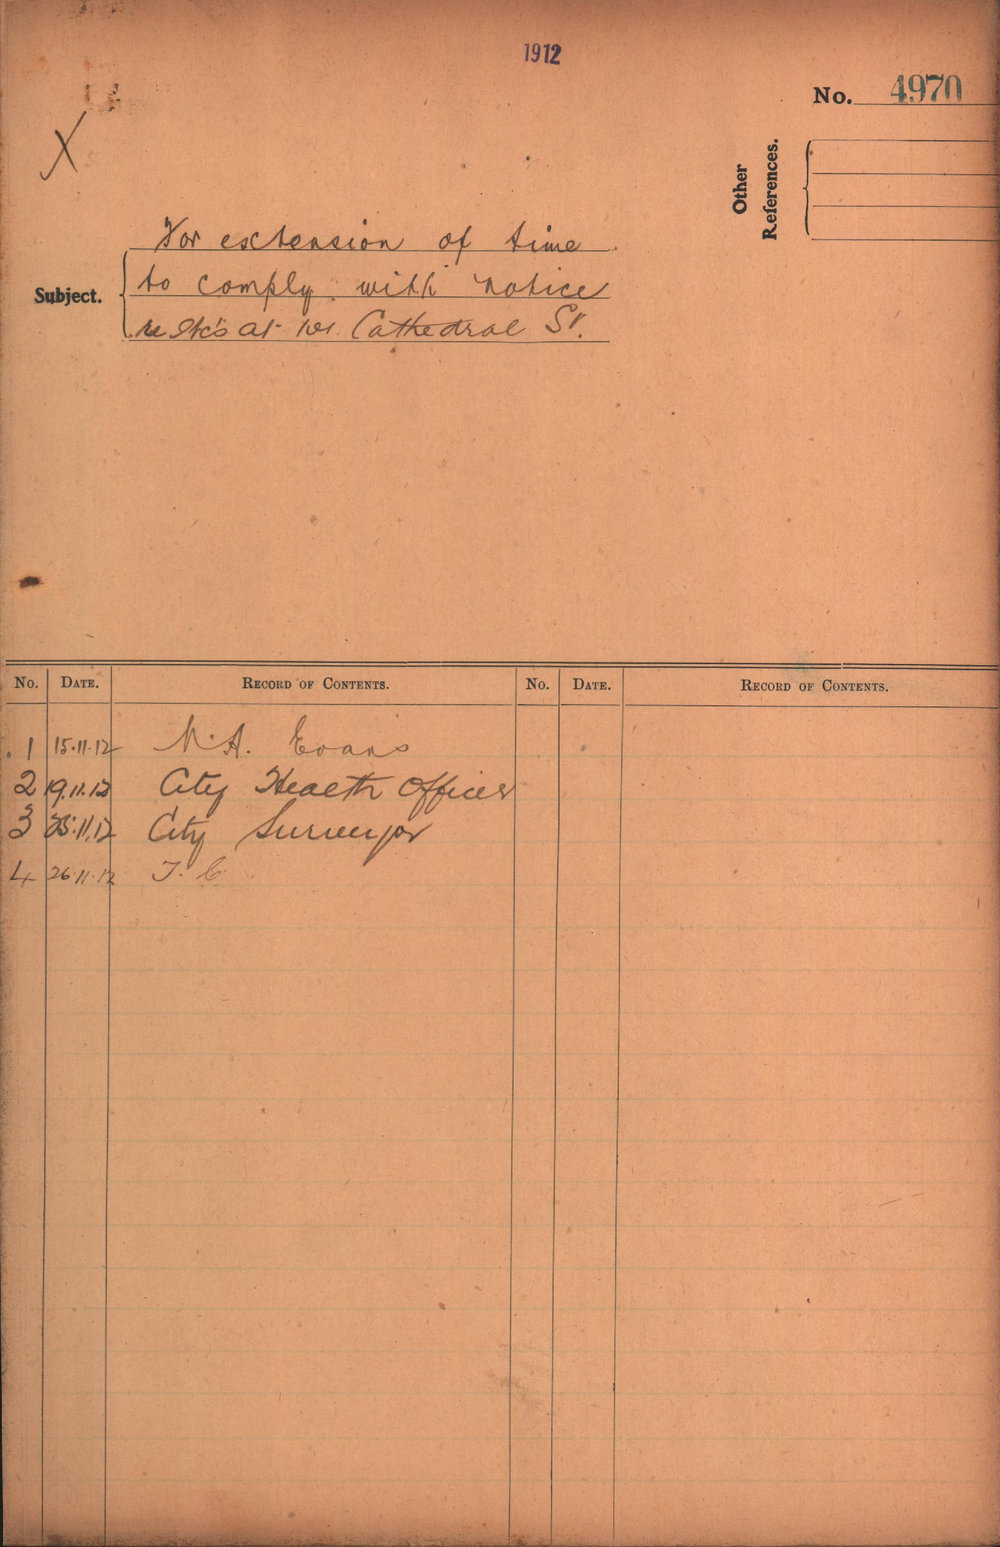 1912
No. 4970
X
Other References.
Subject.
For extension of time
to comply with notice
re at Cathedral St.
No. DATE. RECORD OF CONTENTS. No. DATE. RECORD OF CONTENTS.
1 15.11.12 A. Evans
2 19.11.12 City Health Officer
3 25.11.12 City Surveyor
4 26.11.12 T. C.